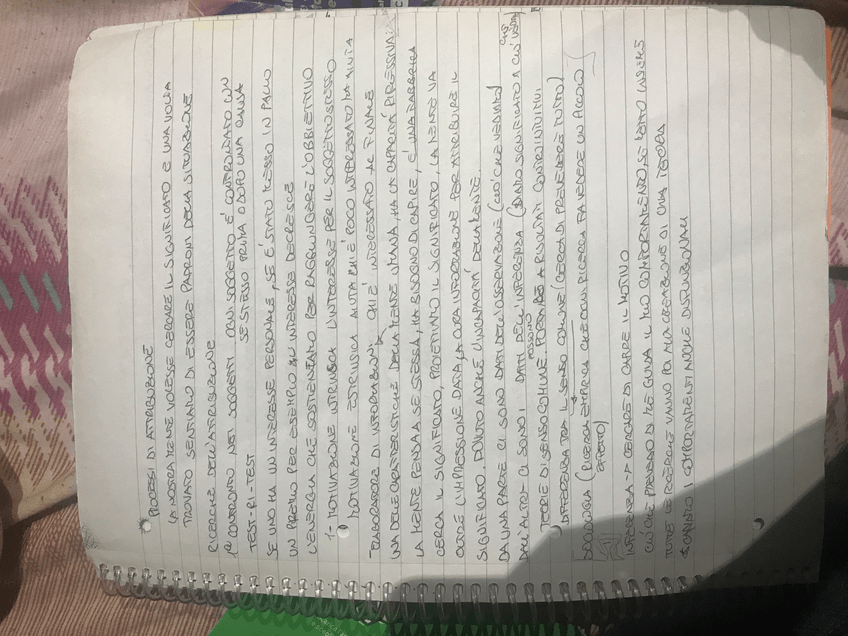 PROCESSI DI ATTRIBUZIONE
LA NOSTRA MENTE VOLESSE CERCARE IL SIGNIFICATO E UNA VOLTA
TROVATO SENTIAMO DI ESSERE PADRONI DELLA SITUAZIONE
RICERCHE DELL'ATTRIBUZIONE
CONFRONTO NEI SOGGETTI OGNI SOGGETTO È CONTROLLATO CON
SE STESSO PRIMA O DOPO UNA CAUSA
TEST-RI-TEST
SE UNO HA UN INTERESSE PERSONALE, SE È STATO MESSO IN PALIO
UN PREMIO PER ESEMPIO SU INTERESSE DECRESCE
L'ENERGIA CHE SOSTENIAMO PER RAGGIUNGERE L'OBBIETTIVO
1- MOTIVAZIONE INTRINSECA L'INTERESSE PER IL SOGGETTO STESSO
MOTIVAZIONE ESTRINSECA AIUTA CHI È POCO INTERESSATO MA AIUTA
ELABORATORE DI INFORMAZIONI CHI È INTERESSATO AL FINALE
UNA DELLE CARATTERISTICHE DELLA MENTE UMANA, HA LA CAPACITÁ RIFLESSIVA:
LA MENTE PENSA A SE STESSA, HA BISOGNO DI CAPIRE, È UNA FABBRICA
CERCA IL SIGNIFICATO, PROIETTIAMO IL SIGNIFICATO, LA MENTE VA
OLTRE L'IMPRESSIONE DATA, LA CURA INFORMAZIONE PER ATTRIBUIRE IL
SIGNIFICATO. DOVUTO ANCHE L'INCAPACITÁ DELLA MENTE
DA UNA PARTE CI SONO DATI DELL'OSSERVAZIONE (CIÓ CHE VEDIAMO)
DALL'ALTRA CI SONO I DATI DELL'INFERENZA (DIAMO SIGNIFICATO A CIÓ CHE VEDIAMO)
TEORIE DI SENSO COMUNE. POSSONO PORTARE A RISULTATI CONTROINTUITIVI
DIFFERENZA TRA IL SENSO COMUNE (CERCA DI PREVEDERE TUTTO)
(RICERCA EMPIRICA CHE OGNI RICERCA FA VEDERE UN PICCOLO
EFFETTO)
INFERENZA → CERCARE DI CAPIRE IL MOTIVO
CIÓ CHE PENSANO DI ME GUIDA IL MIO COMPORTAMENTO, SE
TUTTE LE RICERCHE VANNO POI ALLA CREAZIONE DI UNA TEORIA
CAPIAMO I COMPORTAMENTI ANCHE DISFUNZIONALI